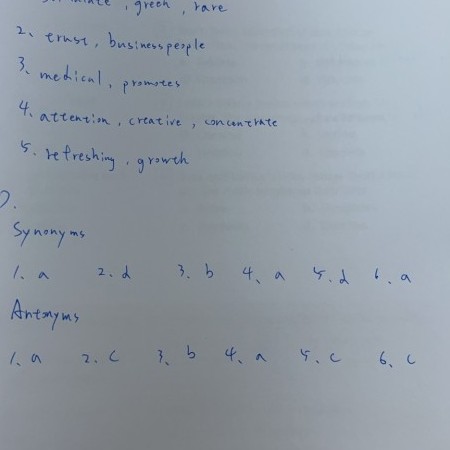 , green , rare
2、 trust , businesspeople
3、 medical , promotes
4、 attention , creative , concentrate
5. refreshing , growth
D.
Synonyms
1. a 2. d 3. b 4、 a 5. d 6. a
Antonyms
1. a 2. c 3、 b 4、 a 5. c 6、 c